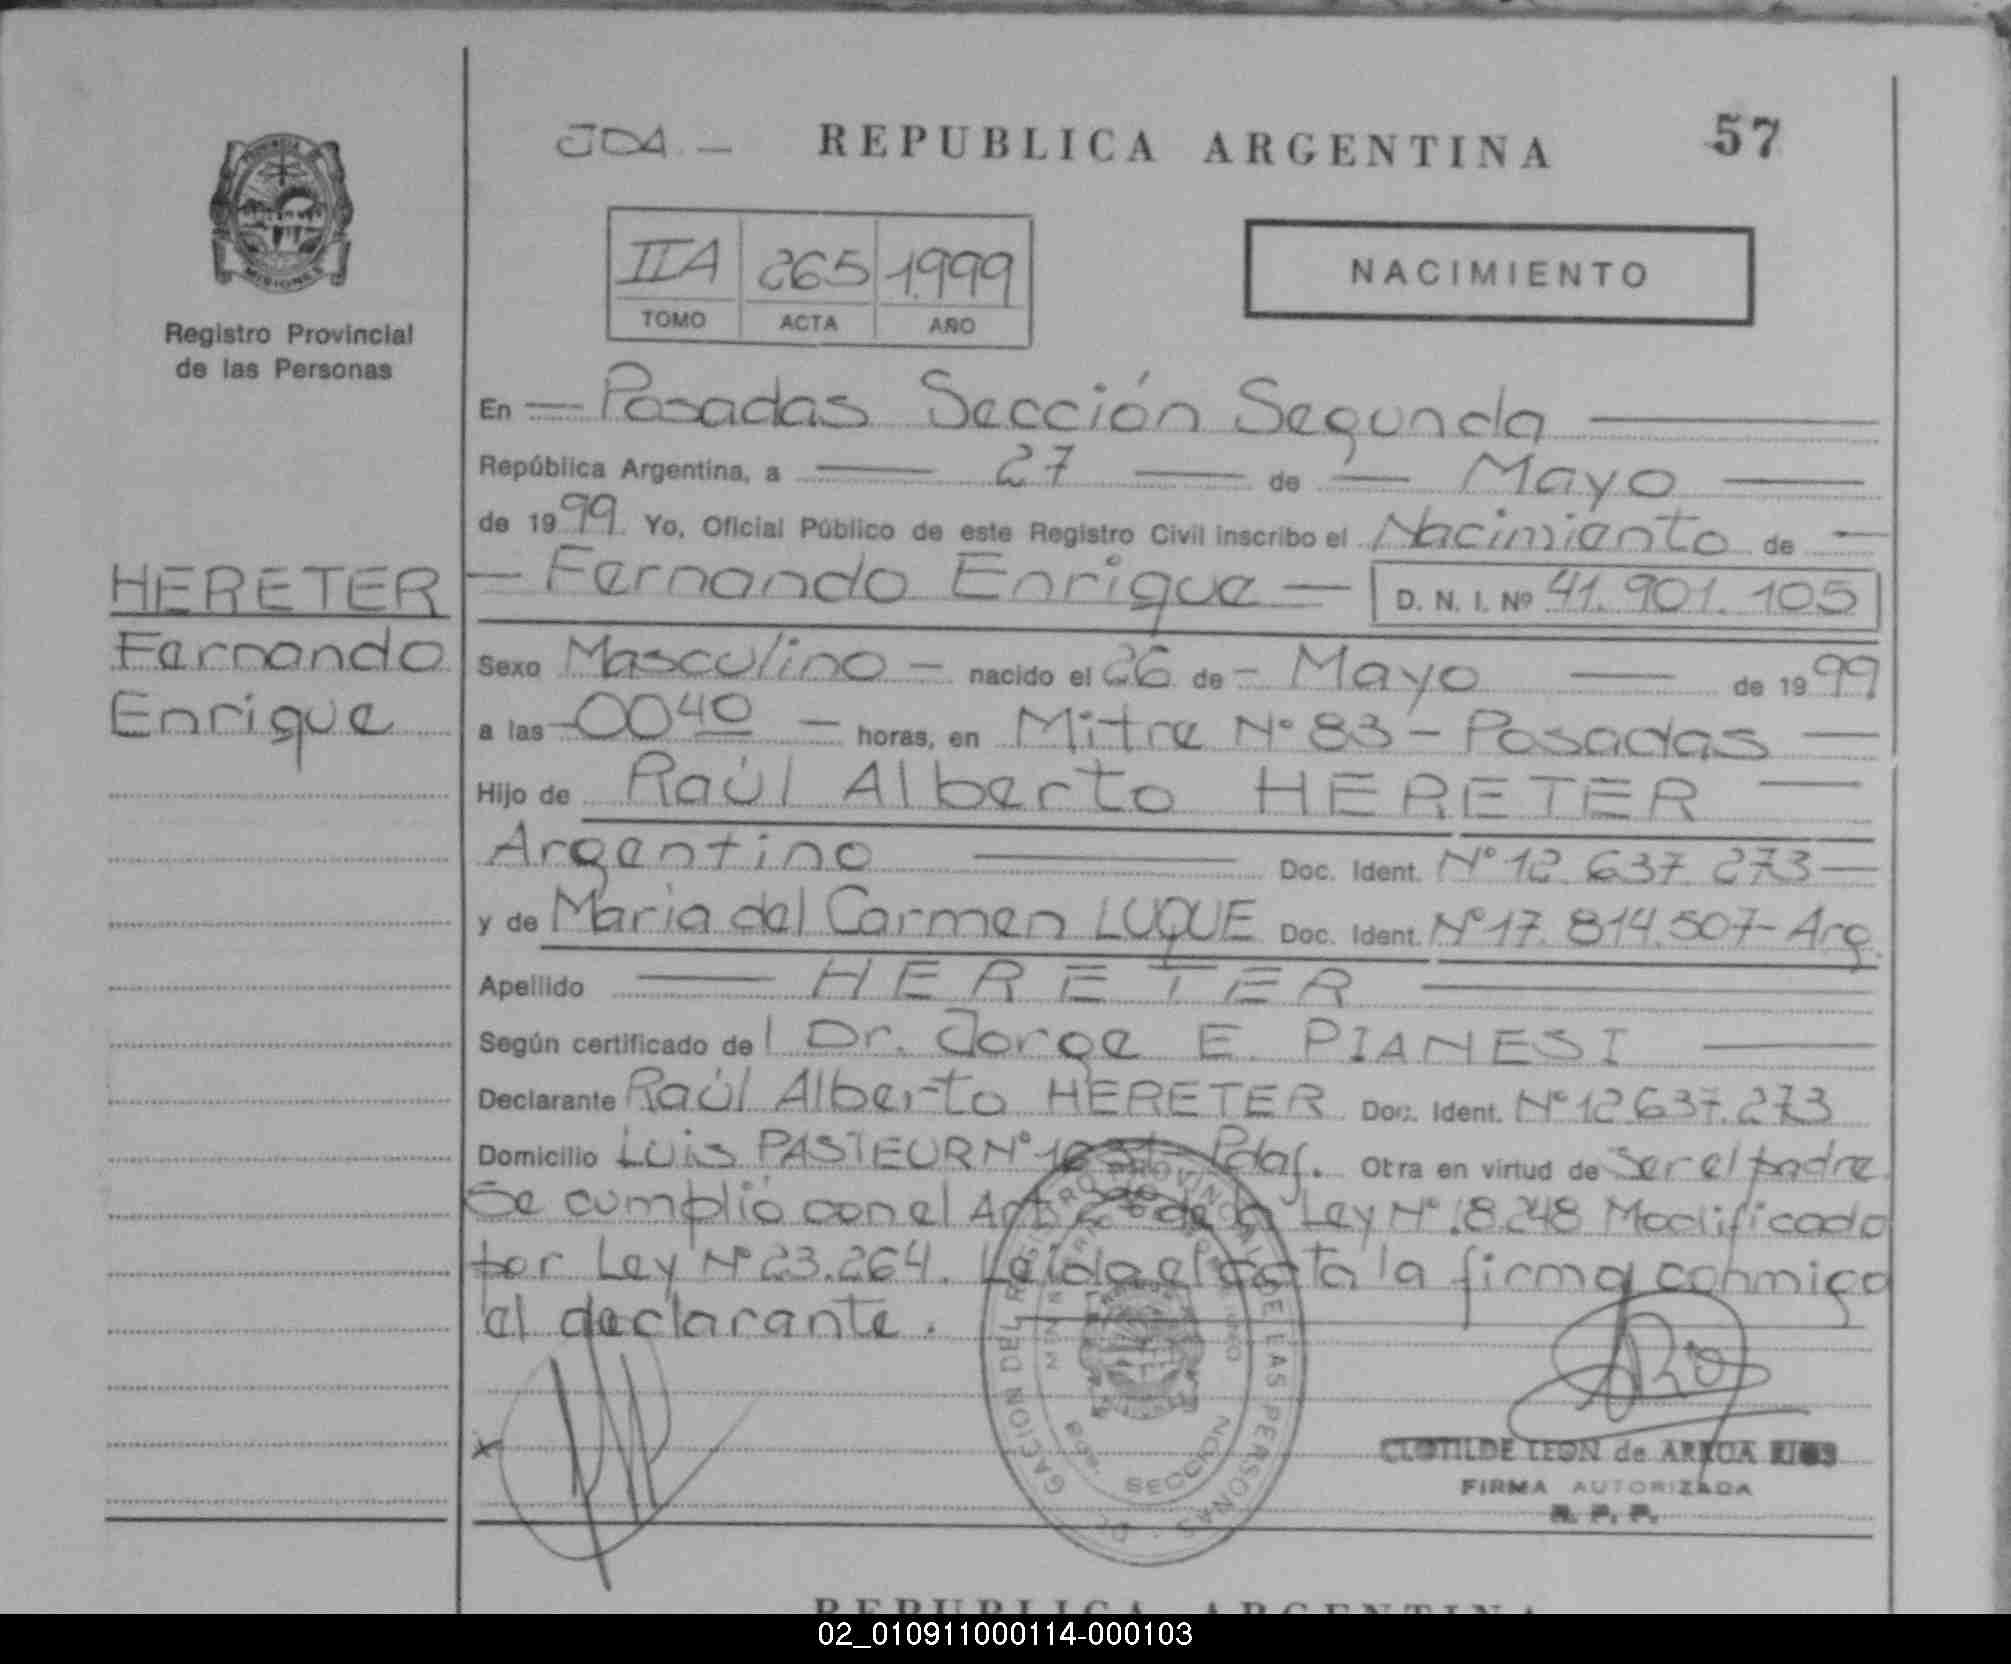 JDA.- REPUBLICA ARGENTINA 57
IIA 265 1.999
TOMO ACTA AÑO
NACIMIENTO
MISIONES
Registro Provincial
de las Personas
HERETER
Fernando
Enrique
En — Posadas Sección Segunda —
República Argentina, a — 27 — de — Mayo —
de 1999. Yo, Oficial Público de este Registro Civil inscribo el Nacimiento de —
— Fernando Enrique — D. N. I. Nº 41.901.105
Sexo Masculino — nacido el 26 de - Mayo — de 1999
a las - 00 40 — horas, en Mitre Nº 83 - Posadas —
Hijo de Raúl Alberto HERETER —
Argentino — Doc. Ident. Nº 12.637.273 —
y de María del Carmen LUQUE Doc. Ident. Nº 17.814.507 - Arg.
Apellido — HERETER —
Según certificado del Dr. Jorge E. PIANESI —
Declarante Raúl Alberto HERETER Doc. Ident. Nº 12.637.273
Domicilio Luis PASTEUR Nº Pdas. Otra en virtud de ser el padre
Se cumplió con el Art. de la Ley Nº 18.248 Modificado
por Ley Nº 23.264. Leída el acta la firma conmigo
el declarante.
DELEGACION DEL REGISTRO PROVINCIAL DE LAS PERSONAS
SECCION
CLOTILDE LEON de ARRUA RIOS
FIRMA AUTORIZADA
R. P. P.
REPUBLICA ARGENTINA
02_010911000114-000103